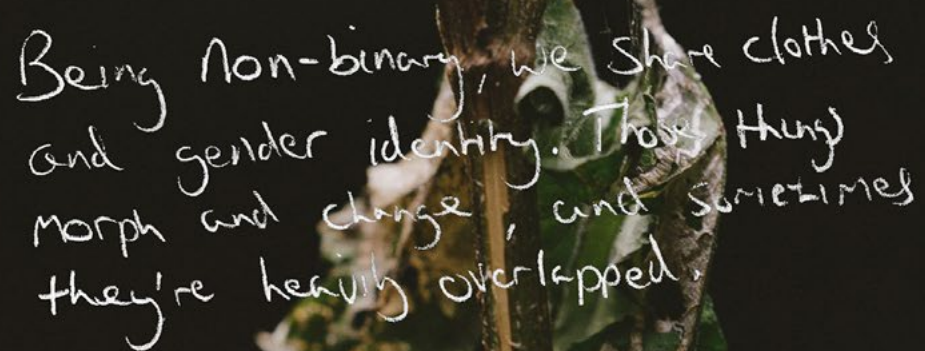 Being Non-binary, we share clothes
and gender identity. Those things
morph and change, and sometimes
they're heavily overlapped.